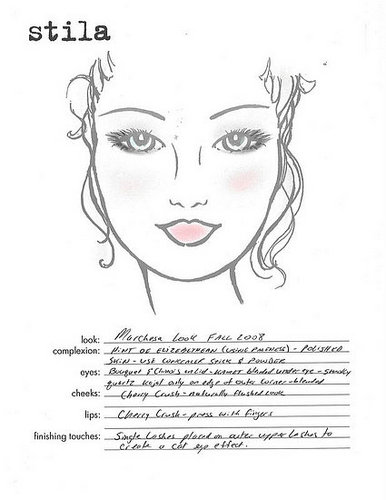 stila
look: Marchesa Look FALL 2008
complexion: HINT OF ELIZABETHEAN (USING PALENESS) - POLISHED
SKIN - USE CONCEALER STICK & POWDER
eyes: Bouquet & Cloud's blended under eye - smoky
quartz kajal only on edge of outer corner - blended
cheeks: Cherry Crush - naturally flushed look
lips: Cherry Crush - press with fingers
finishing touches: Single lashes placed on outer upper lashes to
create a cat eye effect.